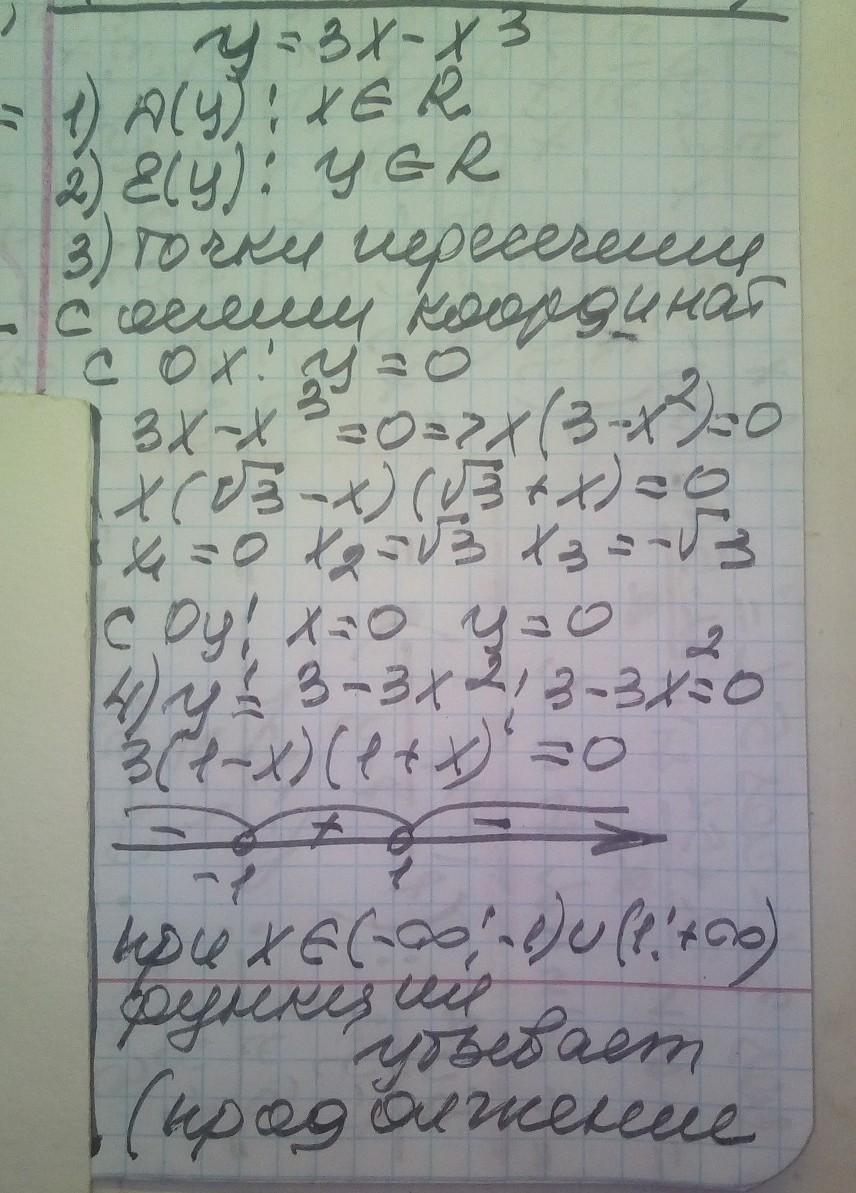 y = 3x - x³
1) Д(y): x ∈ R
2) E(y): y ∈ R
3) точки пересечения
с осями координат
с Ox: y = 0
3x - x³ = 0 => x(3 - x²) = 0
x(√3 - x)(√3 + x) = 0
x₁ = 0 x₂ = √3 x₃ = -√3
с Oy: x = 0 y = 0
4) y' = 3 - 3x²; 3 - 3x² = 0
3(1 - x)(1 + x) = 0
- + -
-1 1
при x ∈ (-∞; -1) ∪ (1; +∞)
функция
убывает
(продолжение